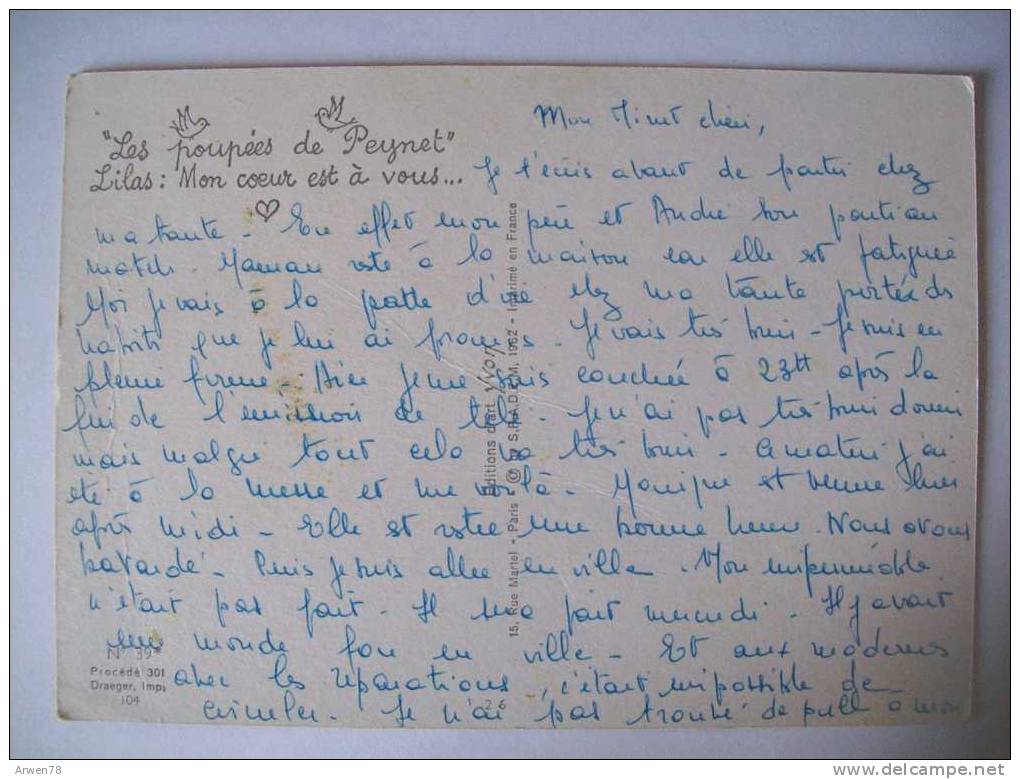 "Les poupées de Peynet"
Lilas : Mon coeur est à vous...
Mon Minet chéri,
Je t'écris avant de partir chez
ma tante - En effet mon père et André son parti au
match - Maman reste à la maison car elle est fatiguée
Moi je vais à la patte d'oie chez ma tante porter ds
habits que je lui ai promis - Je vais très bien - Je suis en
pleine forme. Hier je me suis couchée à 23H après la
fin de l'émission de télé - Je n'ai pas très bien dormi
mais malgré tout cela va très bien - Ce matin j'ai
été à la messe et me voilà - Monique est venue hier
après midi - Elle est restée une bonne heure. Nous avons
bavardé - Puis je suis allée en ville. Mon imperméable
n'était pas fait - Il sera fait mercredi - Il y avait
un monde fou en ville - Et aux modernes
avec les réparations, c'était impossible de
circuler - Je n'ai pas trouvé de pull à mon
Editions d'art Yvon
15, Rue Martel - Paris - © by S.P.A.D.E.M. 1962 - Imprimé en France
N° 39
Procédé 301
Draeger, Imp
104
26
Arwen78
http://www.delcampe.net